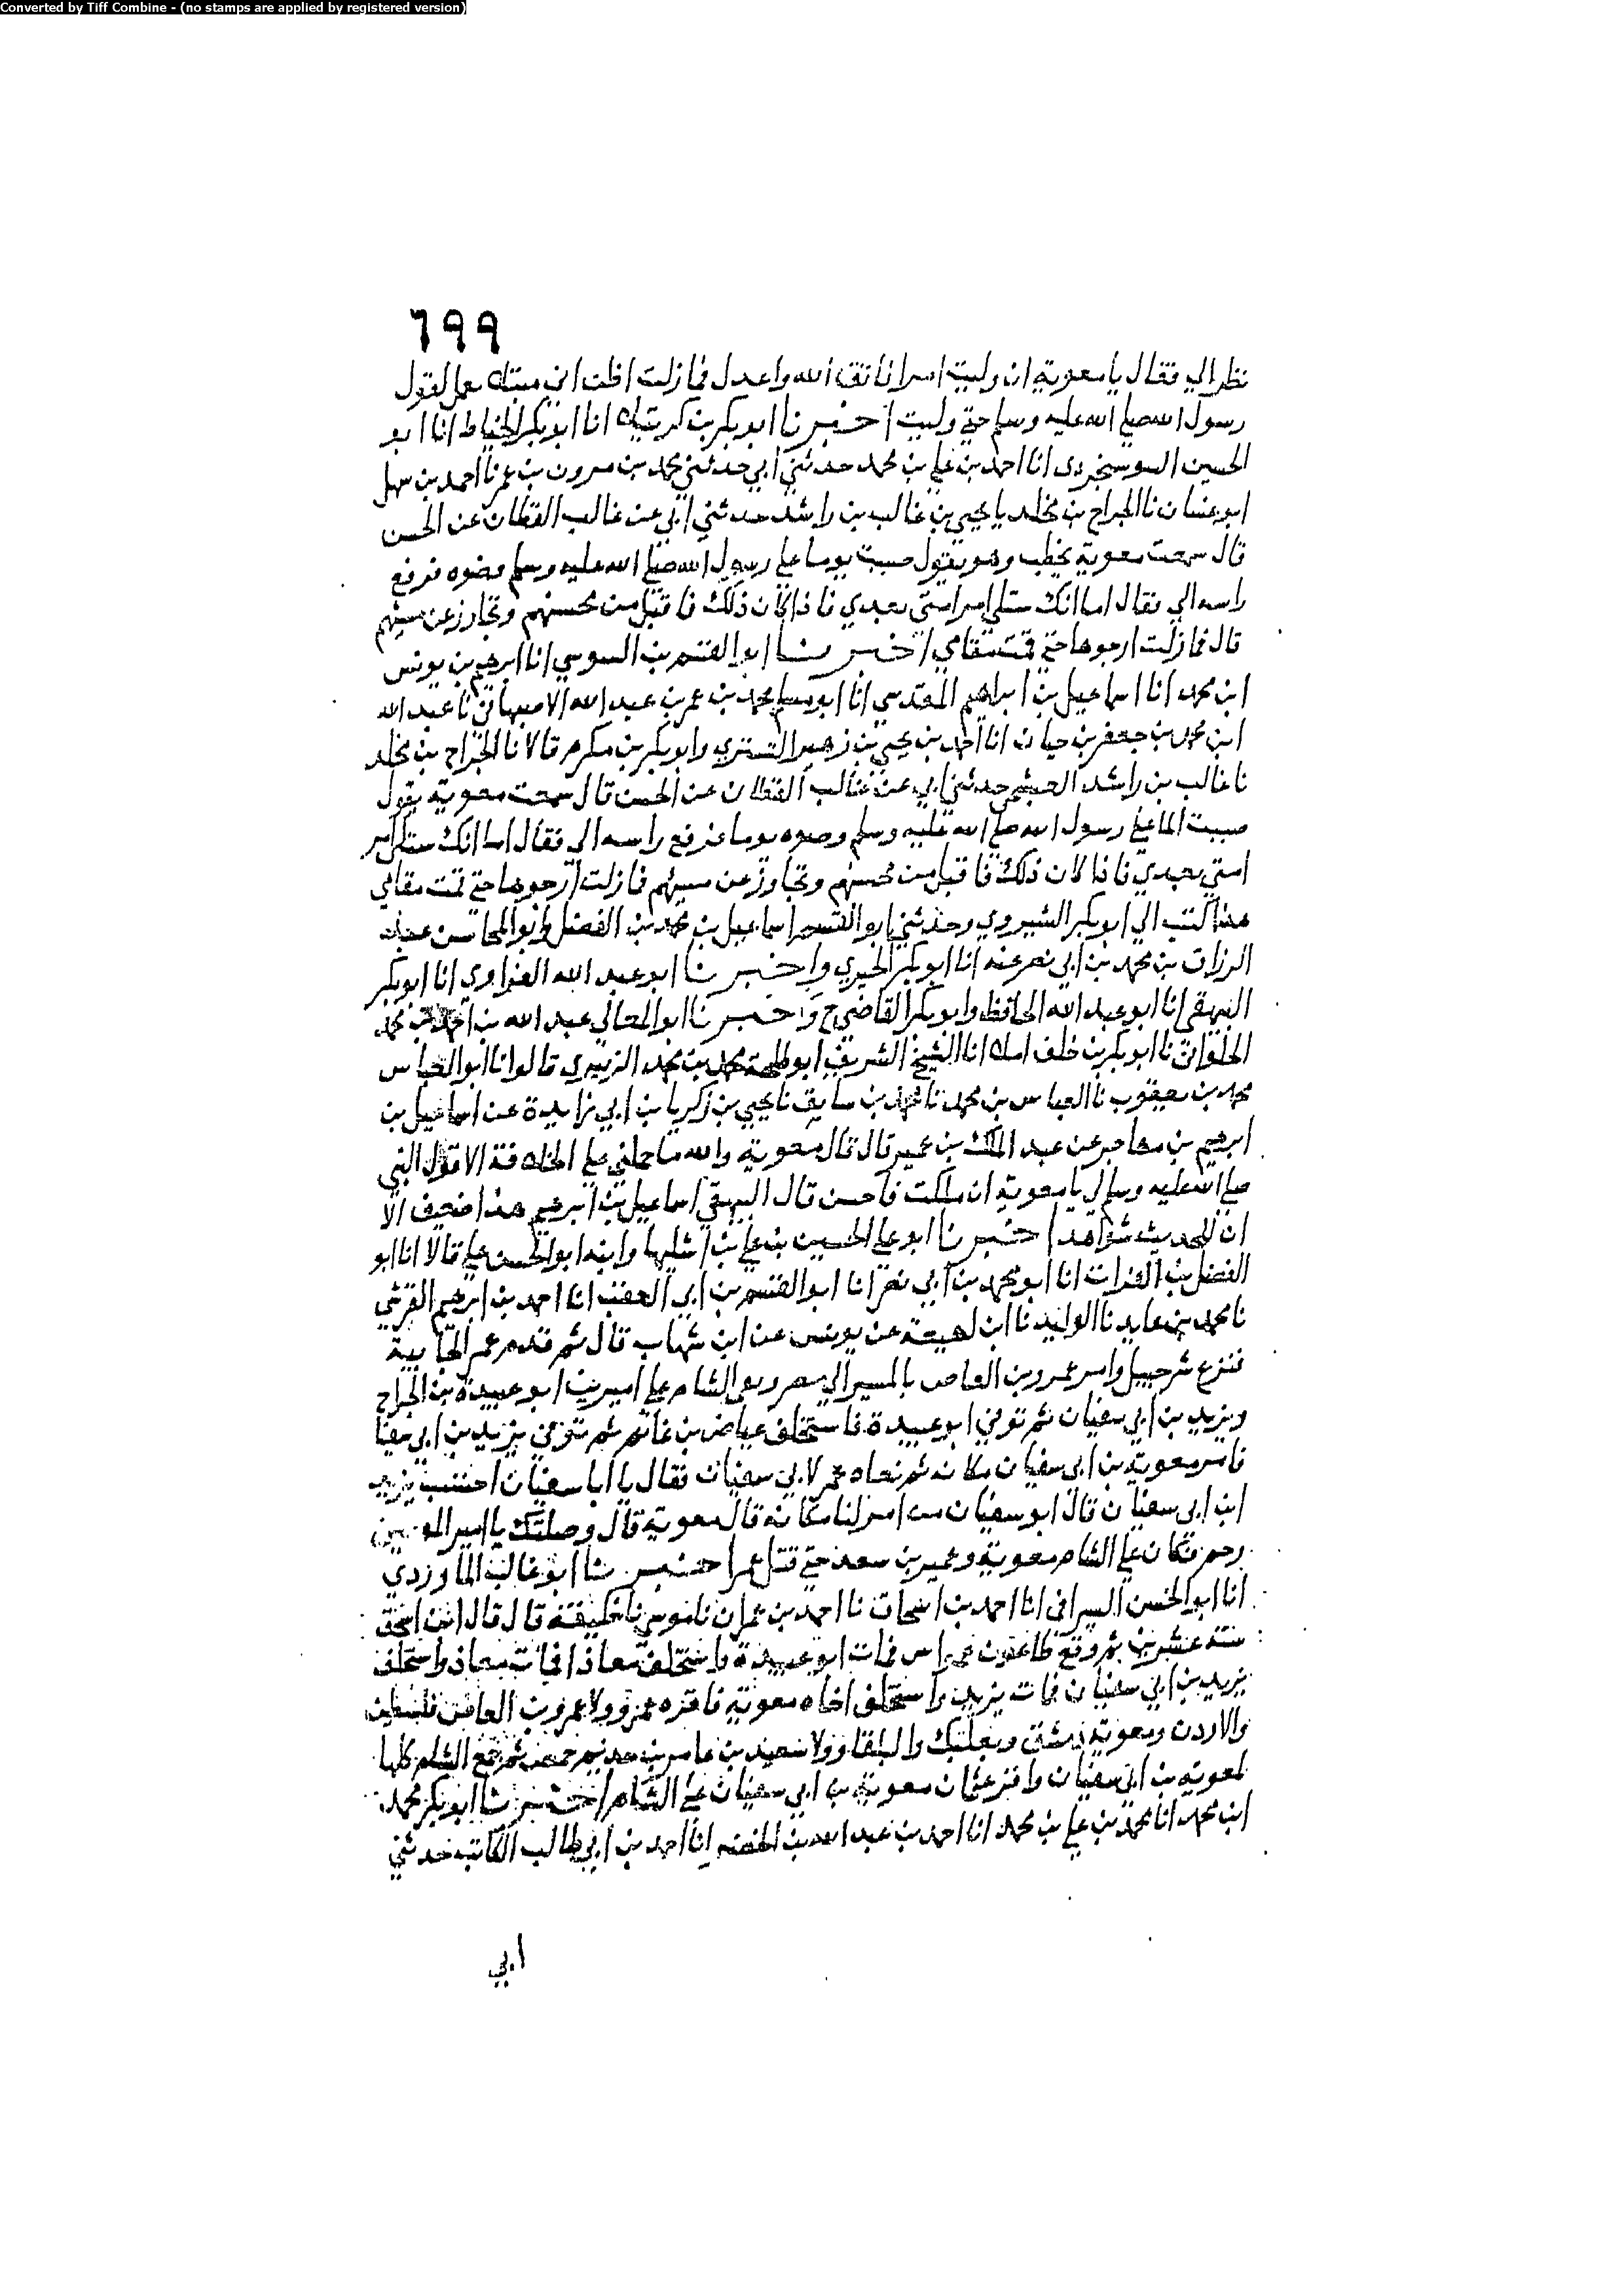 Converted by Tiff Combine - (no stamps are applied by registered version)
٦٩٩
نظر الي فقال يا معوية ان وليت امرا فاتق الله واعدل فما زلت اظن اني مبتلى بعمل لقول
رسول الله صلى الله عليه وسلم حتى وليت اخبرنا ابو بكر بن كرتيلا انا ابو بكر الخياط انا ابو
الحسين السوسنجردى انا احمد بن علي بن محمد حدثني ابي حدثني محمد بن مرون بن عمر نا احمد بن سهل
ابو غسان نا الجراح بن مخلد يا يحيى بن غالب بن راشد حدثني ابي عن غالب القطان عن الحسن
قال سمعت معوية يخطب وهو يقول صببت يوما على رسول الله صلى الله عليه وسلم وضوه فرفع
راسه الي فقال اما انك ستلي امر امتي بعدي فاذا كان ذلك فاقبل من محسنهم وتجاوز عن مسيئهم
قال فما زلت ارجوها حتى قمت مقامي اخبرنا ابو القسم بن السوسي انا ابرهيم بن يونس
ابن محمد انا اسماعيل بن ابراهيم المقدسي انا ابو مسلم محمد بن عمر بن عبد الله الاصبهاني نا عبد الله
ابن محمد بن جعفر بن حيان انا احمد بن يحيى بن زهير التستري وابو بكر بن مكرم قالا نا الجراح بن مخلد
نا غالب بن راشد حدثني ابي عن غالب القطان عن الحسن قال سمعت معوية يقول
صببت الما على رسول الله صلى الله عليه وسلم وضوه يوما فرفع راسه الي فقال اما انك ستلي امر
امتي بعدي فاذا كان ذلك فاقبل من محسنهم وتجاوز عن مسيئهم فما زلت ارجوها حتى قمت مقامي
هذا كتب الي ابو بكر الشيروي وحدثني ابو القسم اسماعيل بن محمد بن الفضل وابو المحاسن عبد
الرزاق بن محمد بن ابي نصر عنه انا ابو بكر الحيري واخبرنا ابو عبد الله الفراوي انا ابو بكر
البيهقي انا ابو عبد الله الحافظ وابو بكر القاضي ح واخبرنا ابو المعالي عبد الله بن احمد بن محمد
الحلواني نا ابو بكر بن خلف املا انا الشيخ الشريف ابو طلحة محمد بن محمد الزبيري قالوا نا ابو العباس
محمد بن يعقوب نا العباس بن محمد نا محمد بن سابق نا يحيى بن زكريا بن ابي زايدة عن اسماعيل بن
ابرهيم بن مهاجر عن عبد الملك بن عمير قال قال معوية والله ما حملني على الخلافة الا قول النبي
صلى الله عليه وسلم لي يا معوية ان ملكت فاحسن قال البيهقي اسماعيل بن ابرهيم هذا ضعيف الا
ان للحديث شواهد اخبرنا ابو علي الحسين بن علي بن اشليها وابنه ابو الحسن علي قالا انا ابو
الفضل بن الفرات انا ابو محمد بن ابي نصر انا ابو القسم بن ابي العقب انا احمد بن ابرهيم القرشي
نا محمد بن عايد نا الوليد نا ابن لهيعة عن يونس عن ابن شهاب قال ثم قدم عمر الجابية
فنزع شرحبيل وامر عمرو بن العاص بالمسير الى مصر وبقي الشام على اميرين ابو عبيدة بن الجراح
ويزيد بن ابي سفيان ثم توفي ابو عبيدة فاستخلف عياض بن غانم ثم توفي يزيد بن ابي سفيا
فامر معوية بن ابي سفيان مكانه ثم نعاه عمر لابي سفيان فقال يا ابا سفيان احتسب يزيد
ابن ابي سفيان قال ابو سفيان من امر لنا مكانه قال معوية قال وصلتك يا امير المومنين
رحم فكان على الشام معوية وعمير بن سعد حتى قتل عمر اخبرنا ابو غالب الماوردي
انا ابو الحسن السيرافي انا احمد بن اسحاق نا احمد بن عمران نا موسى نا خليفة قال قال ابن اسحق
سنة عشرين ثم وقع طاعون عمواس فمات ابو عبيدة واستخلف معاذا فمات معاذ واستخلف
يزيد بن ابي سفيان فمات يزيد واستخلف اخاه معوية فاقره عمر وولا عمرو بن العاص فلسطين
والاردن ومعوية دمشق وبعلبك والبلقا وولا سعيد بن عامر بن حديم حمص ثم جمع الشام كلها
لمعوية بن ابي سفيان واقر عثمان معوية بن ابي سفيان على الشام اخبرنا ابو بكر محمد
ابن محمد انا محمد بن علي بن محمد انا احمد بن عبد الله بن الخضر انا احمد بن ابي طالب الكاتب حدثني
ابي